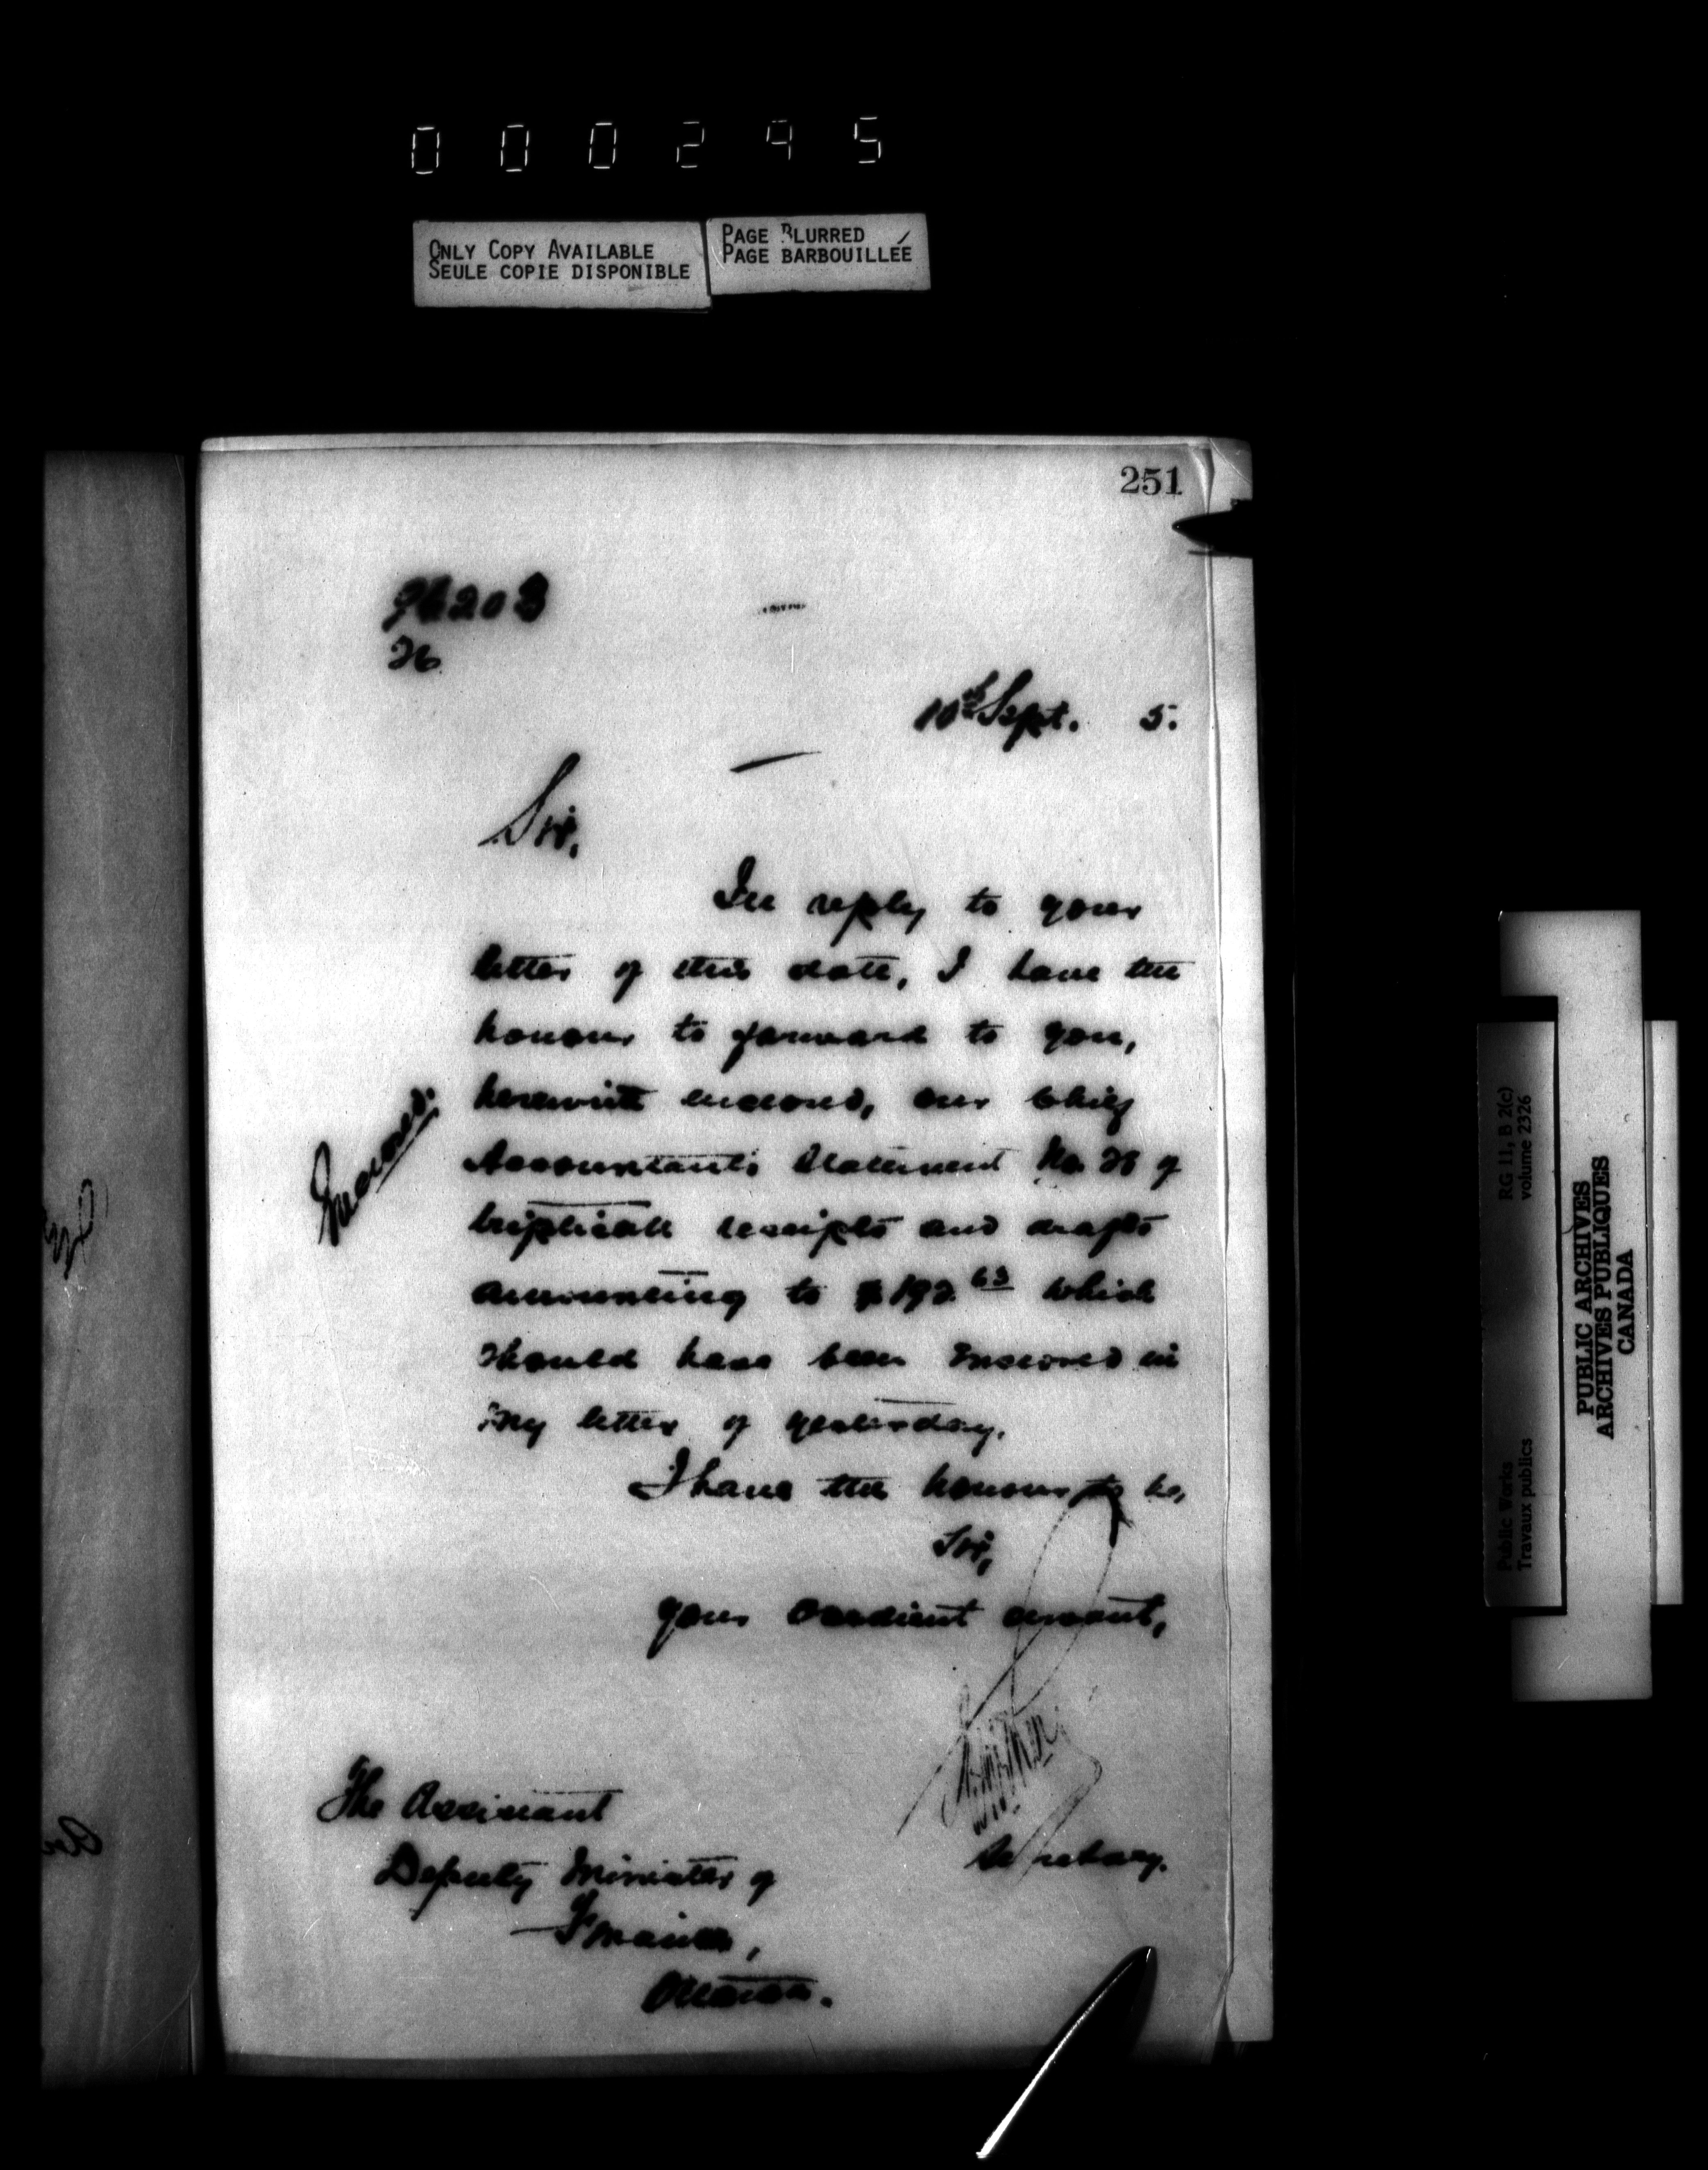 000295
ONLY COPY AVAILABLE
SEULE COPIE DISPONIBLE
PAGE BLURRED
PAGE BARBOUILLÉE
251
26
10th Sept. 5.
Sir,
In reply to your
letter of this date, I have the
honour to forward to you,
herewith enclosed, our Chief
Enclosed.
Accountant's Statement No. 26 of
triplicate receipts and drafts
amounting to $192.63 which
should have been enclosed in
my letter of yesterday.
I have the honour to be,
Sir,
your obedient servant,
Secretary.
The Assistant
Deputy Minister of
Finance,
Ottawa.
Public Works
Travaux publics
RG 11, B 2(c)
volume 2326
PUBLIC ARCHIVES
ARCHIVES PUBLIQUES
CANADA